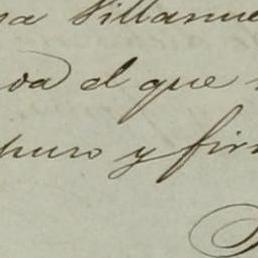 na Villanue
oa el que
puso y fir